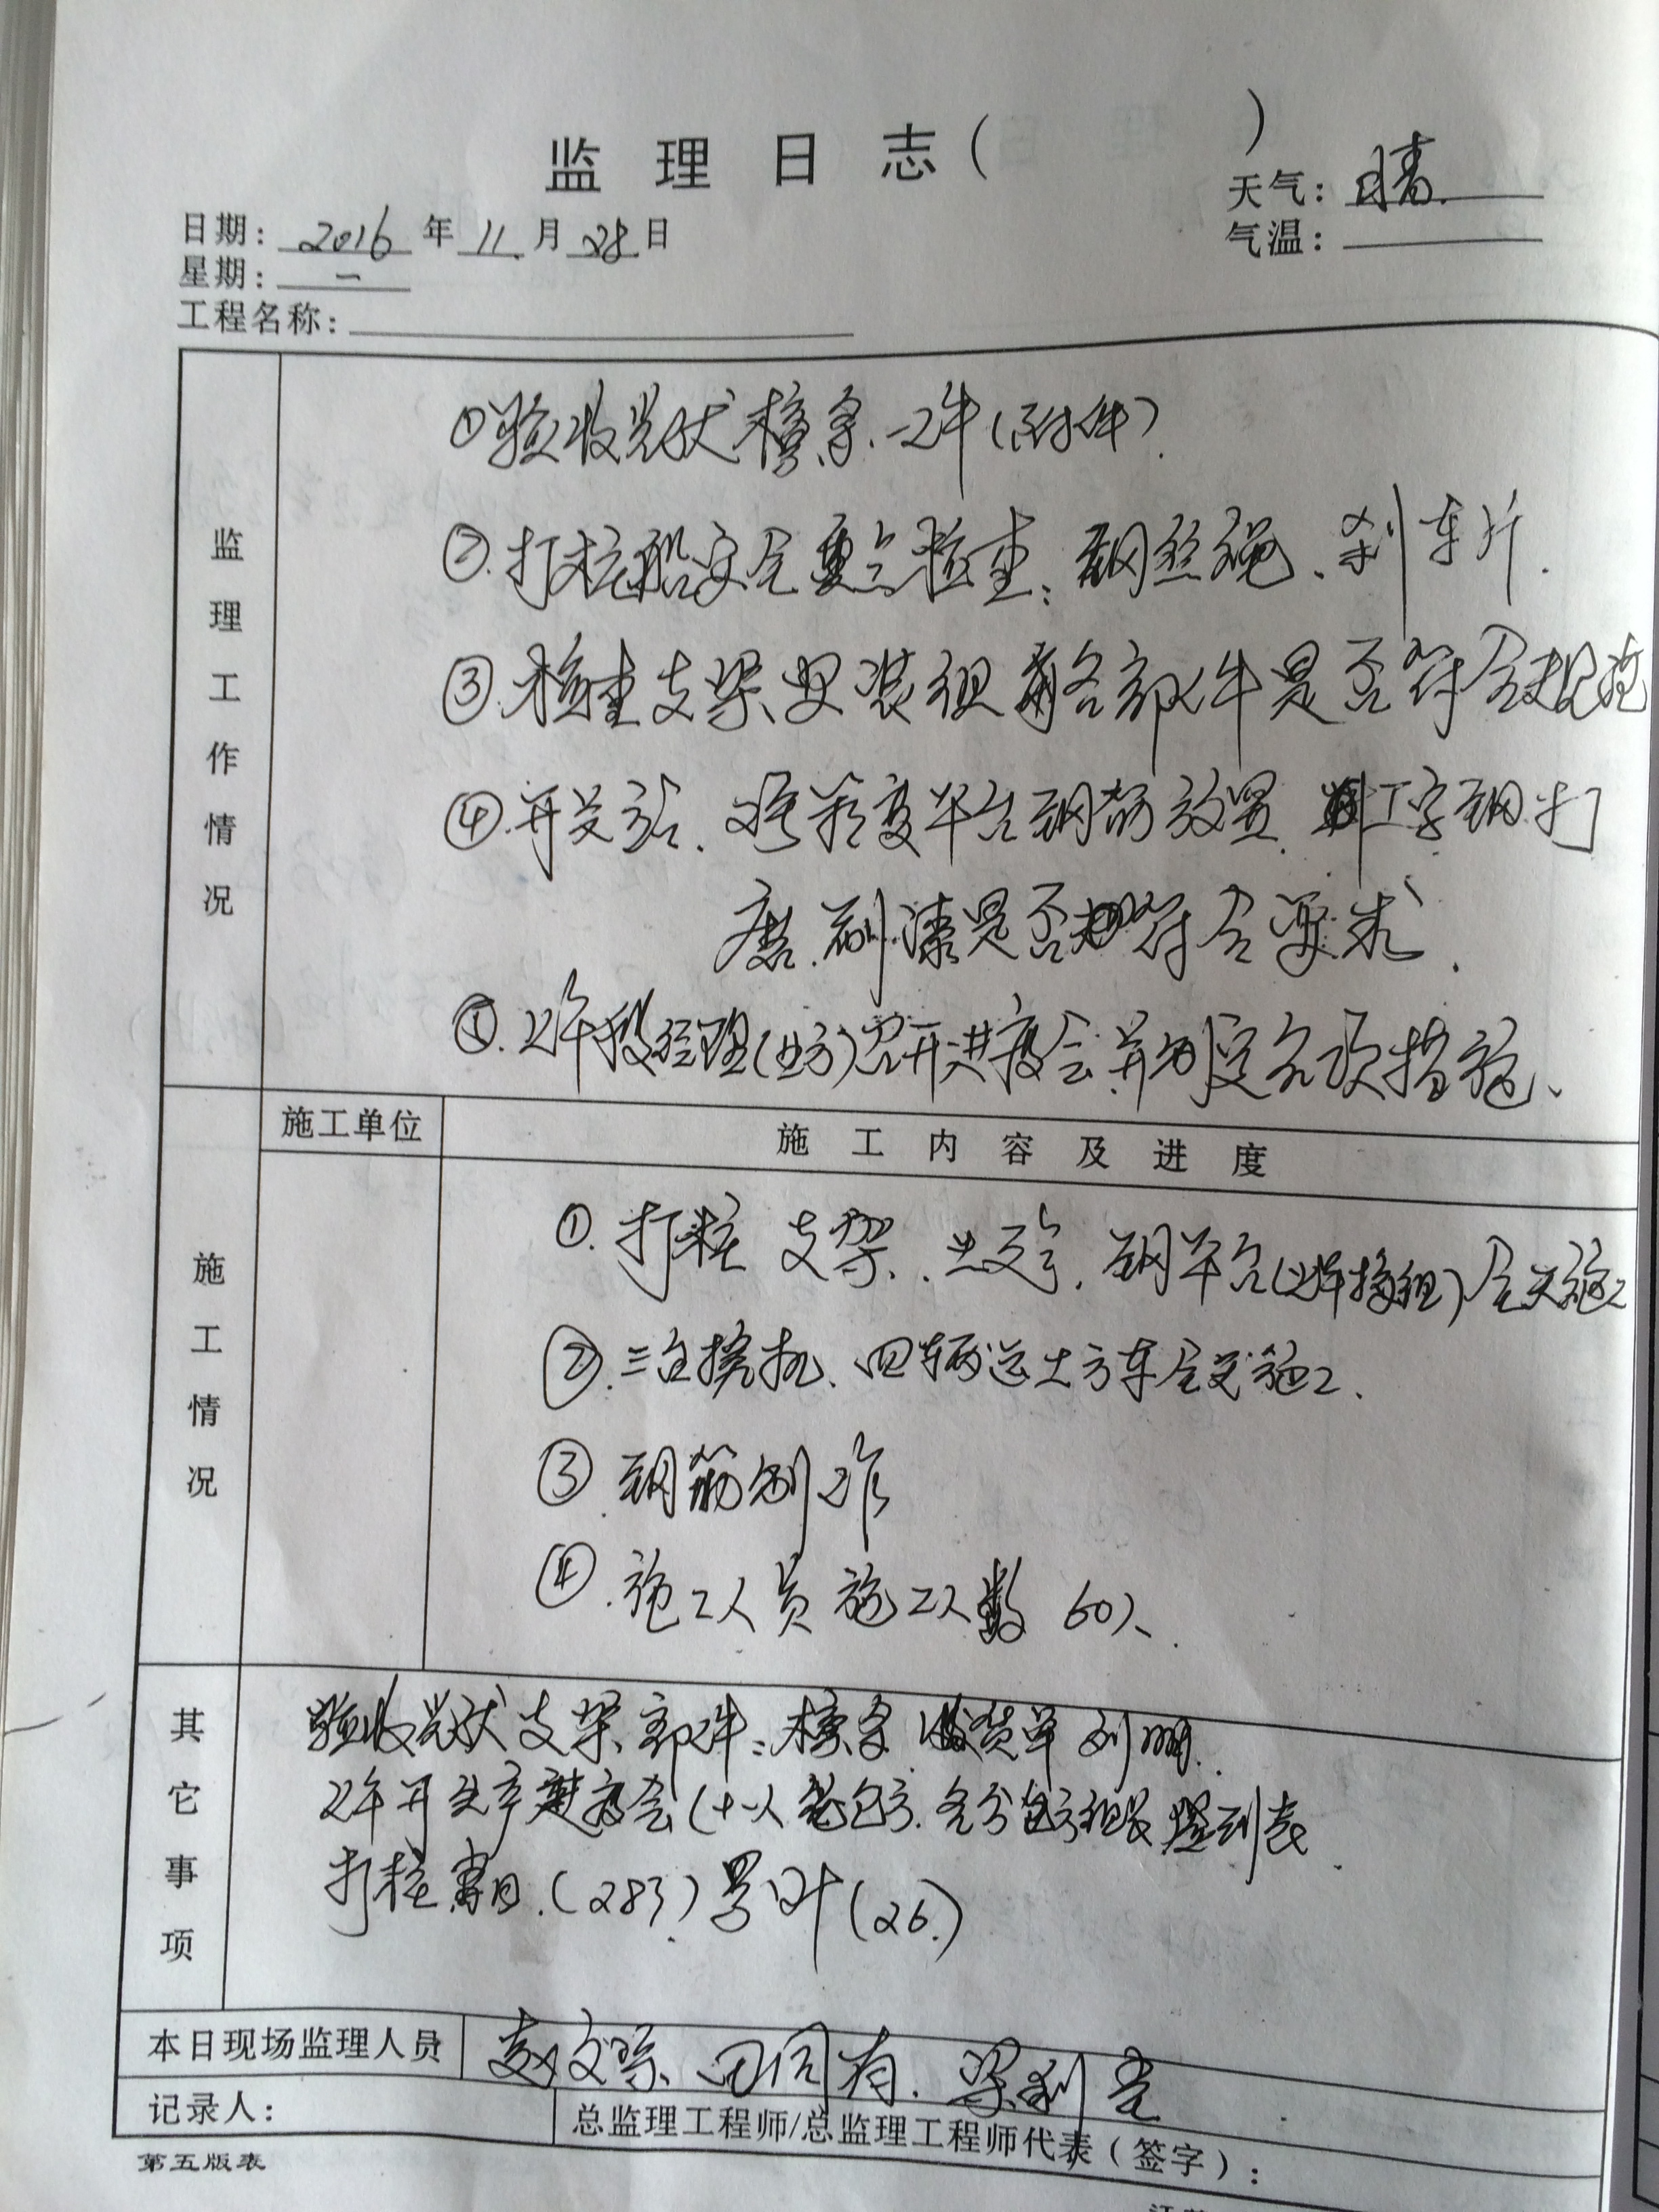 监理日志( )
天气: 晴.
日期: 2016 年 11. 月 28 日
气温:
星期: 一
工程名称:
监理工作情况
①验收 檩条. 一件(附件).
②.打桩船安全重点检查: 钢丝绳、刹车片.
③.检查支架安装组 各部件是否符合规范
④.开关站. 箱变平台钢筋放置. 工字钢打
磨.刷漆是否符合要求.
⑤.上午 经理(业方)召开进度会并制定各项措施、
施工单位
施工内容及进度
施工情况
①.打桩 支架、 . 钢平台(焊接组)全天施工
②.三台挖机、四辆运土方车全天施工.
③.钢筋制作
④.施工人员施工人数 60人.
其它事项
验收 支架部件:檩条 收货单 刘
上午开生产进度会(十一人总包方.各分包方组长 签到表.
打桩 (283) 累计(26.)
本日现场监理人员
田同有.梁利
记录人:
总监理工程师/总监理工程师代表(签字):
第五版表